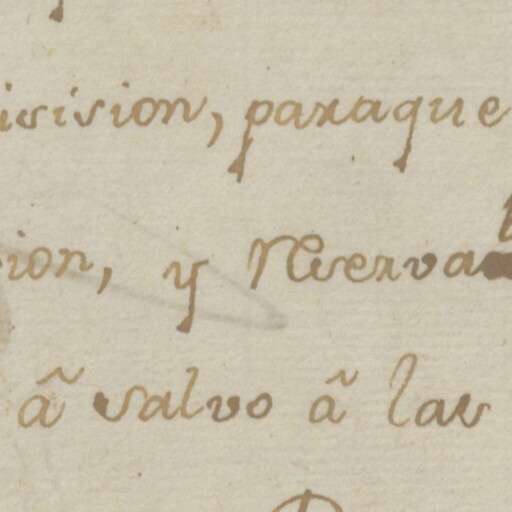 icision, paraque
ion, y Reserva
â salvo â las